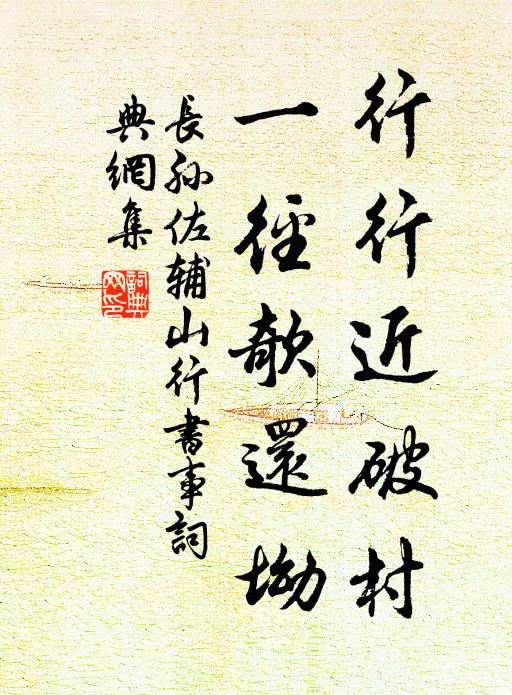 行行近破村
一徑欹還坳
長孫佐輔山行書事詞
典網集
詞典網印